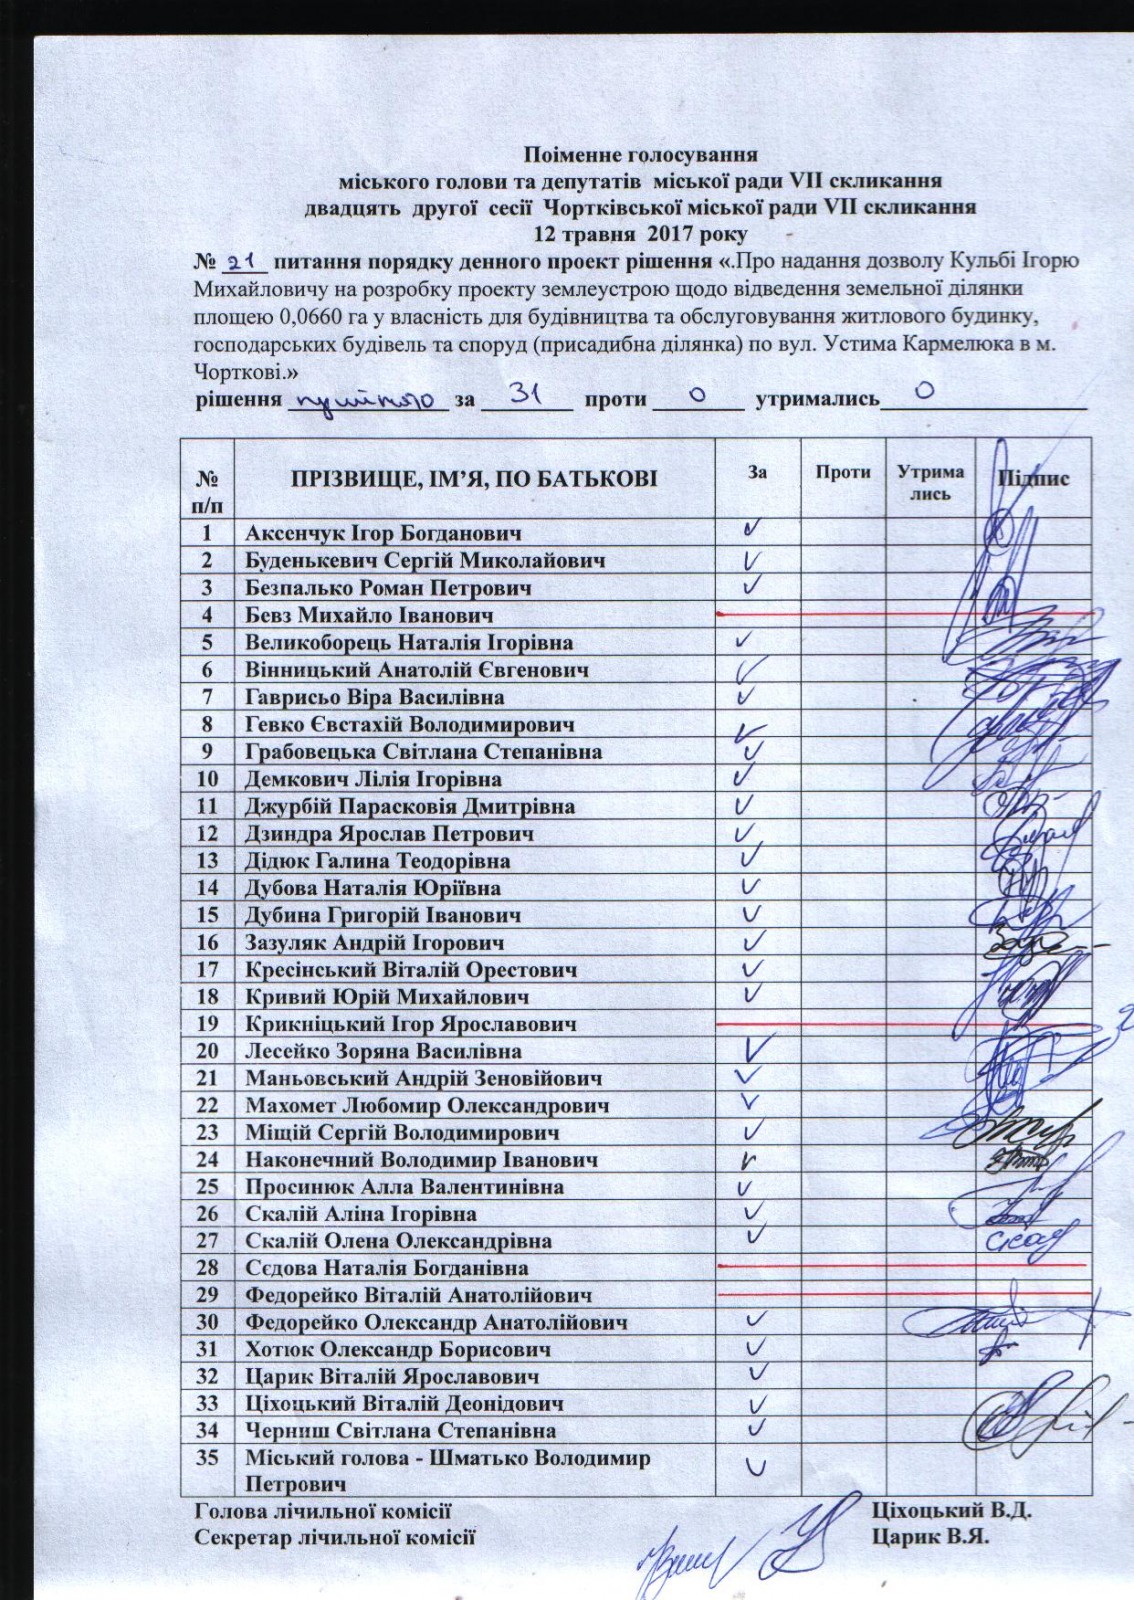 Поіменне голосування
міського голови та депутатів міської ради VII скликання
двадцять другої сесії Чортківської міської ради VII скликання
12 травня 2017 року
№ 21 питання порядку денного проект рішення «.Про надання дозволу Кульбі Ігорю
Михайловичу на розробку проекту землеустрою щодо відведення земельної ділянки
площею 0,0660 га у власність для будівництва та обслуговування житлового будинку,
господарських будівель та споруд (присадибна ділянка) по вул. Устима Кармелюка в м.
Чорткові.»
рішення прийнято за 31 проти 0 утримались 0
№ п/п ПРІЗВИЩЕ, ІМ’Я, ПО БАТЬКОВІ За Проти Утрима лись Підпис
1 Аксенчук Ігор Богданович
2 Буденькевич Сергій Миколайович
3 Безпалько Роман Петрович
4 Бевз Михайло Іванович
5 Великоборець Наталія Ігорівна
6 Вінницький Анатолій Євгенович
7 Гаврисьо Віра Василівна
8 Гевко Євстахій Володимирович
9 Грабовецька Світлана Степанівна
10 Демкович Лілія Ігорівна
11 Джурбій Парасковія Дмитрівна
12 Дзиндра Ярослав Петрович
13 Дідюк Галина Теодорівна
14 Дубова Наталія Юріївна
15 Дубина Григорій Іванович
16 Зазуляк Андрій Ігорович
17 Кресінський Віталій Орестович
18 Кривий Юрій Михайлович
19 Крикніцький Ігор Ярославович
20 Лесейко Зоряна Василівна
21 Маньовський Андрій Зеновійович
22 Махомет Любомир Олександрович
23 Міщій Сергій Володимирович
24 Наконечний Володимир Іванович
25 Просинюк Алла Валентинівна
26 Скалій Аліна Ігорівна
27 Скалій Олена Олександрівна
28 Сєдова Наталія Богданівна
29 Федорейко Віталій Анатолійович
30 Федорейко Олександр Анатолійович
31 Хотюк Олександр Борисович
32 Царик Віталій Ярославович
33 Ціхоцький Віталій Деонідович
34 Черниш Світлана Степанівна
35 Міський голова - Шматько Володимир
Петрович
Голова лічильної комісії Ціхоцький В.Д.
Секретар лічильної комісії Царик В.Я.